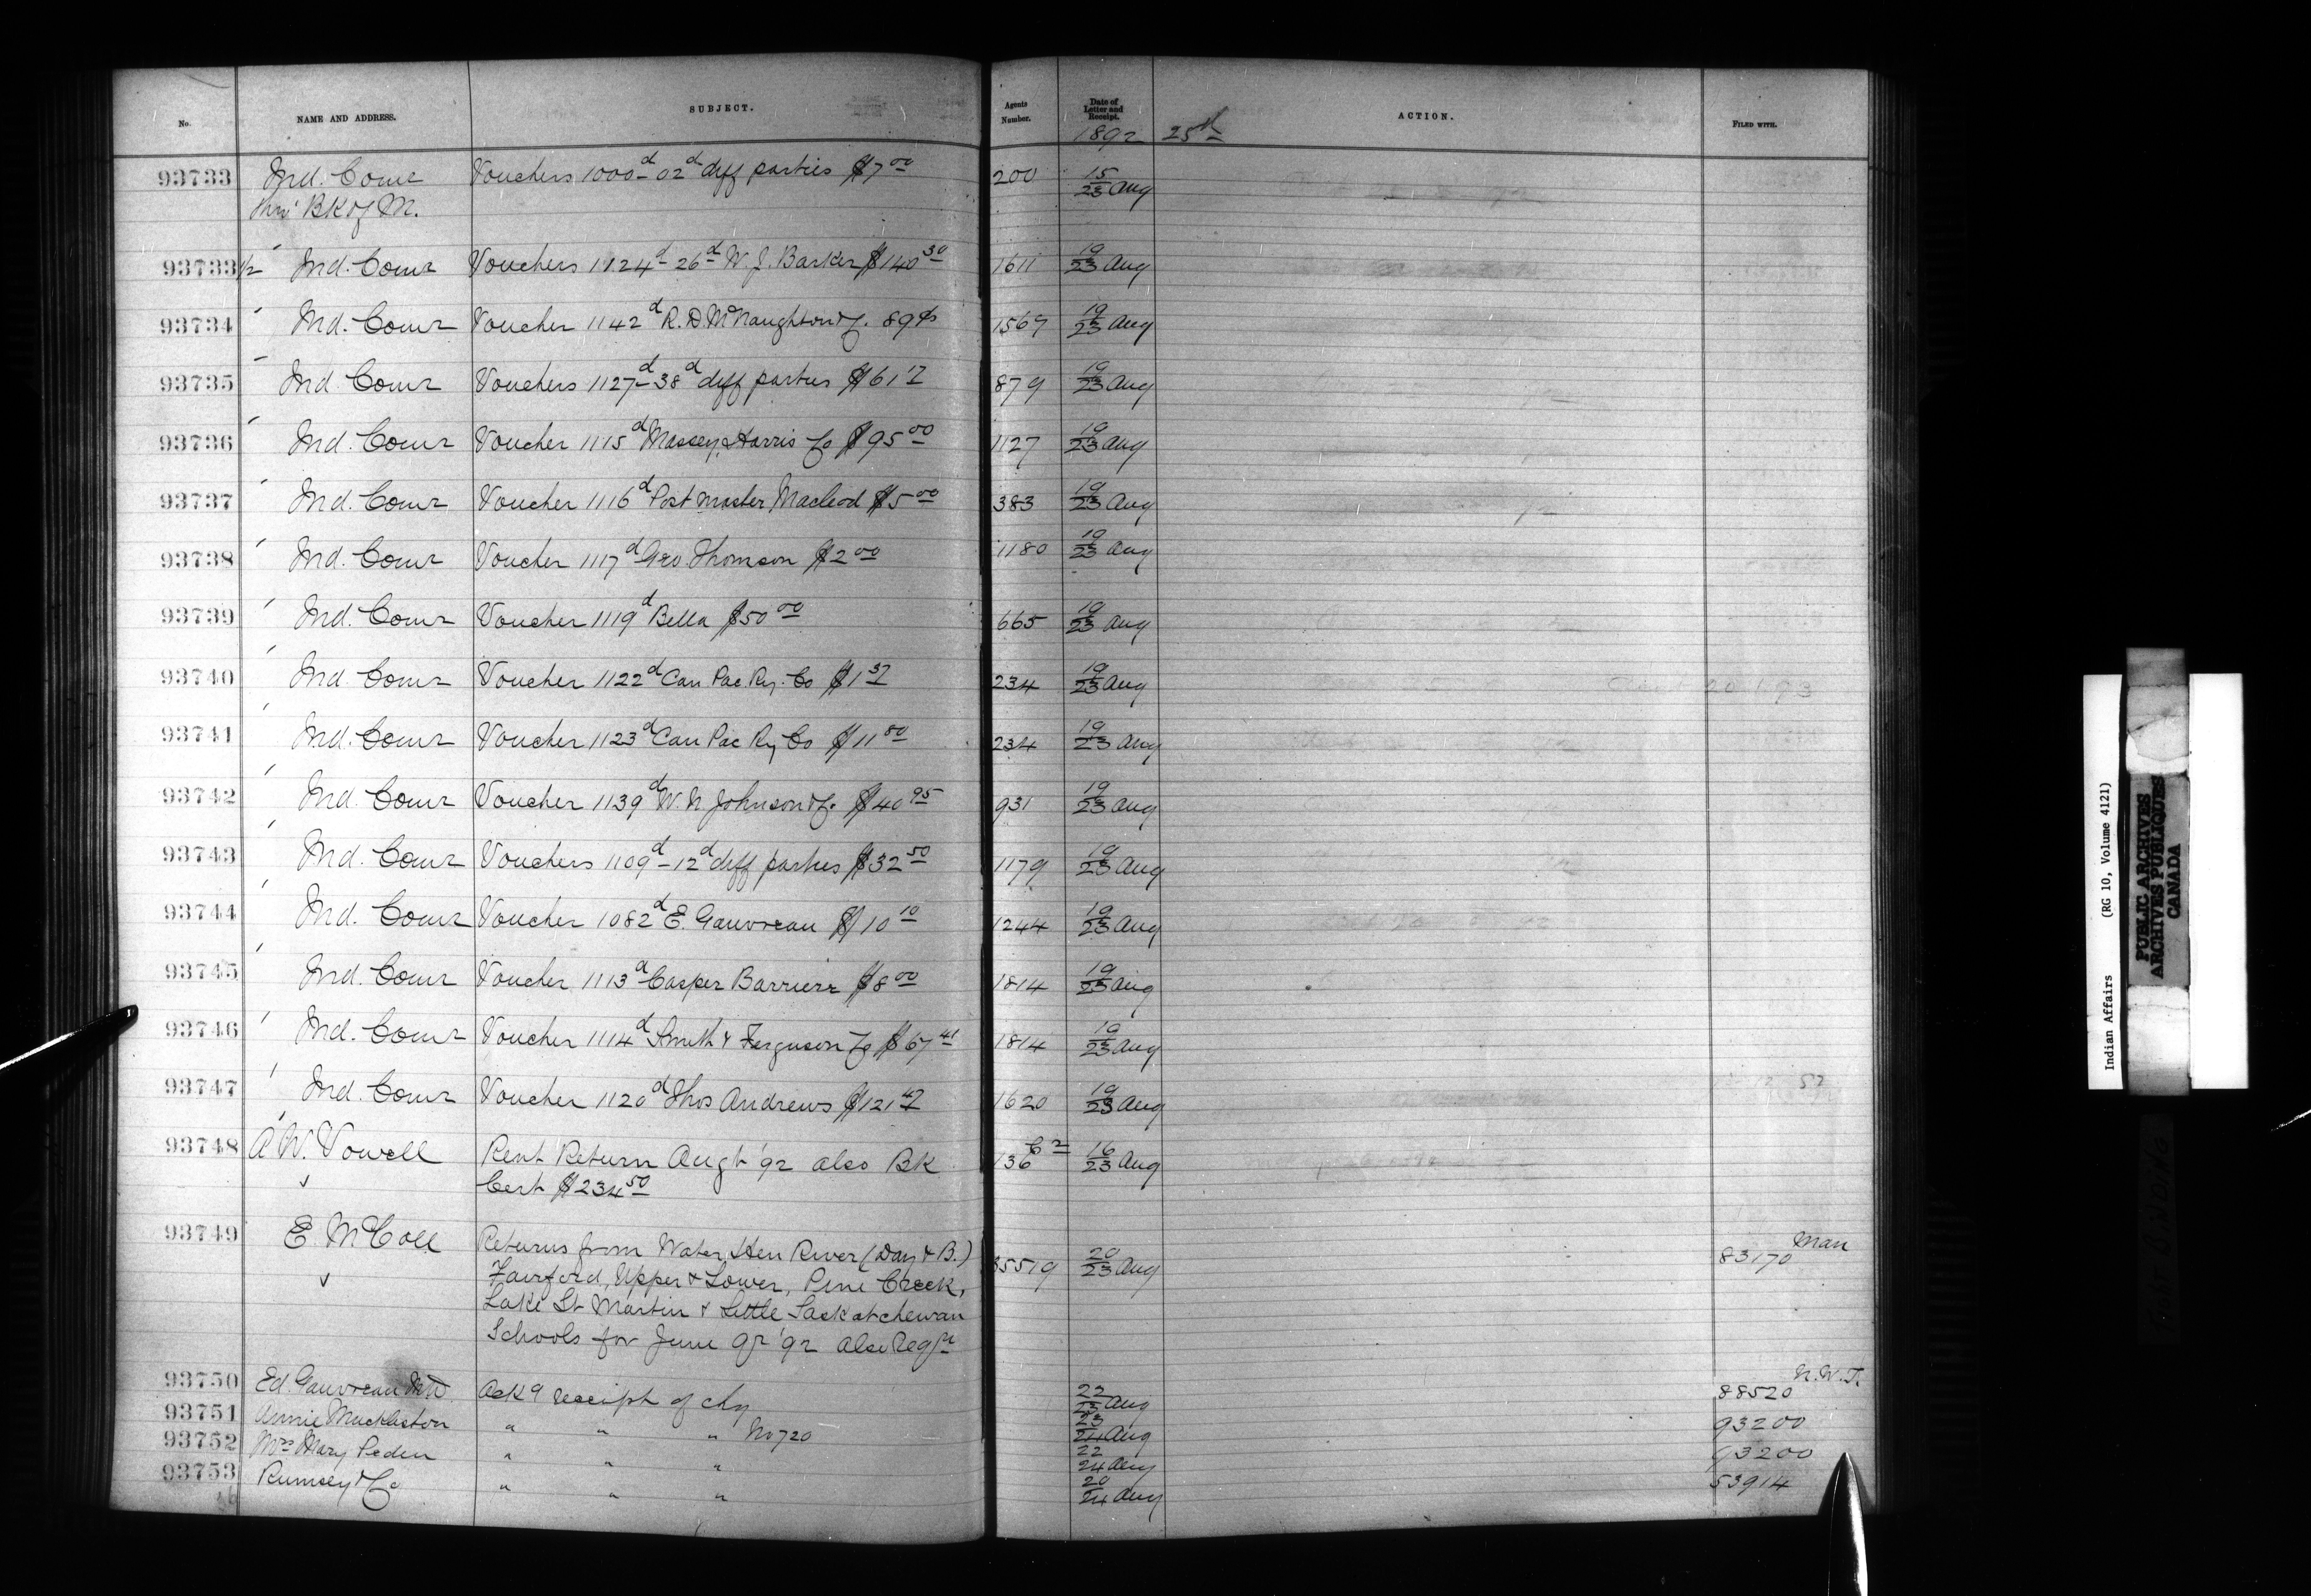 No. NAME AND ADDRESS. SUBJECT. Agents Number. Date of Letter and Receipt. ACTION. FILED WITH.
1892 25th
93733 Ind. Comr Vouchers 1000d-02d diff parties $7 00 200 15/23 Aug
thro' BK of M.
93733 1/2 Ind. Comr Vouchers 1124d-26d W. J. Barker $140 30 1611 19/23 Aug
93734 Ind. Comr Voucher 1142d R. D. McNaughton & Co. 89¢ 1569 19/23 Aug
93735 Ind. Comr Vouchers 1127d-38d diff parties $61 17 879 19/23 Aug
93736 Ind. Comr Voucher 1115d Massey, Harris Co $95 00 1127 19/23 Aug
93737 Ind. Comr Voucher 1116d Post master, Macleod $5 00 383 19/23 Aug
93738 Ind. Comr Voucher 1117d Geo. Thomson $2 00 1180 19/23 Aug
93739 Ind. Comr Voucher 1119d Bella $50 00 665 19/23 Aug
93740 Ind. Comr Voucher 1122d Can Pac. Ry. Co $1 37 234 19/23 Aug
93741 Ind. Comr Voucher 1123d Can Pac Ry Co $11 80 234 19/23 Aug
93742 Ind. Comr Voucher 1139d W. N. Johnson & Co. $40 95 931 19/23 Aug
93743 Ind. Comr Vouchers 1109d-12d diff parties $32 50 1179 19/23 Aug
93744 Ind. Comr Voucher 1082d E. Gauvreau $10 10 1244 19/23 Aug
93745 Ind. Comr Voucher 1113d Casper Barrierr $8 00 1814 19/23 Aug
93746 Ind. Comr Voucher 1114d Smith & Ferguson Co $67 41 1814 19/23 Aug
93747 Ind. Comr Voucher 1120d Thos Andrews $121 47 1620 19/23 Aug
93748 A. W. Vowell Rent Return Augt '92 also BK 136 16/23 Aug
Cert $234 50
93749 E. McColl Returns from Water Hen River (Day & B.) 35519 20/23 Aug 83170 Man
Fairford, Upper & Lower, Pine Creek,
Lake St Martin & Little Saskatchewan
Schools for June qr '92 also Regr
93750 Ed. Gauvreau Ackg receipt of chq 22/23 Aug 88520 N.W.T.
93751 Annie Muckleston " " " No 720 23/24 Aug 93200
93752 Mrs Mary Peden " " " 22/24 Aug 93200
93753 Rumsey & Co " " " 20/24 Aug 53914
Indian Affairs (RG 10, Volume 4121)
PUBLIC ARCHIVES
ARCHIVES PUBLIQUES
CANADA